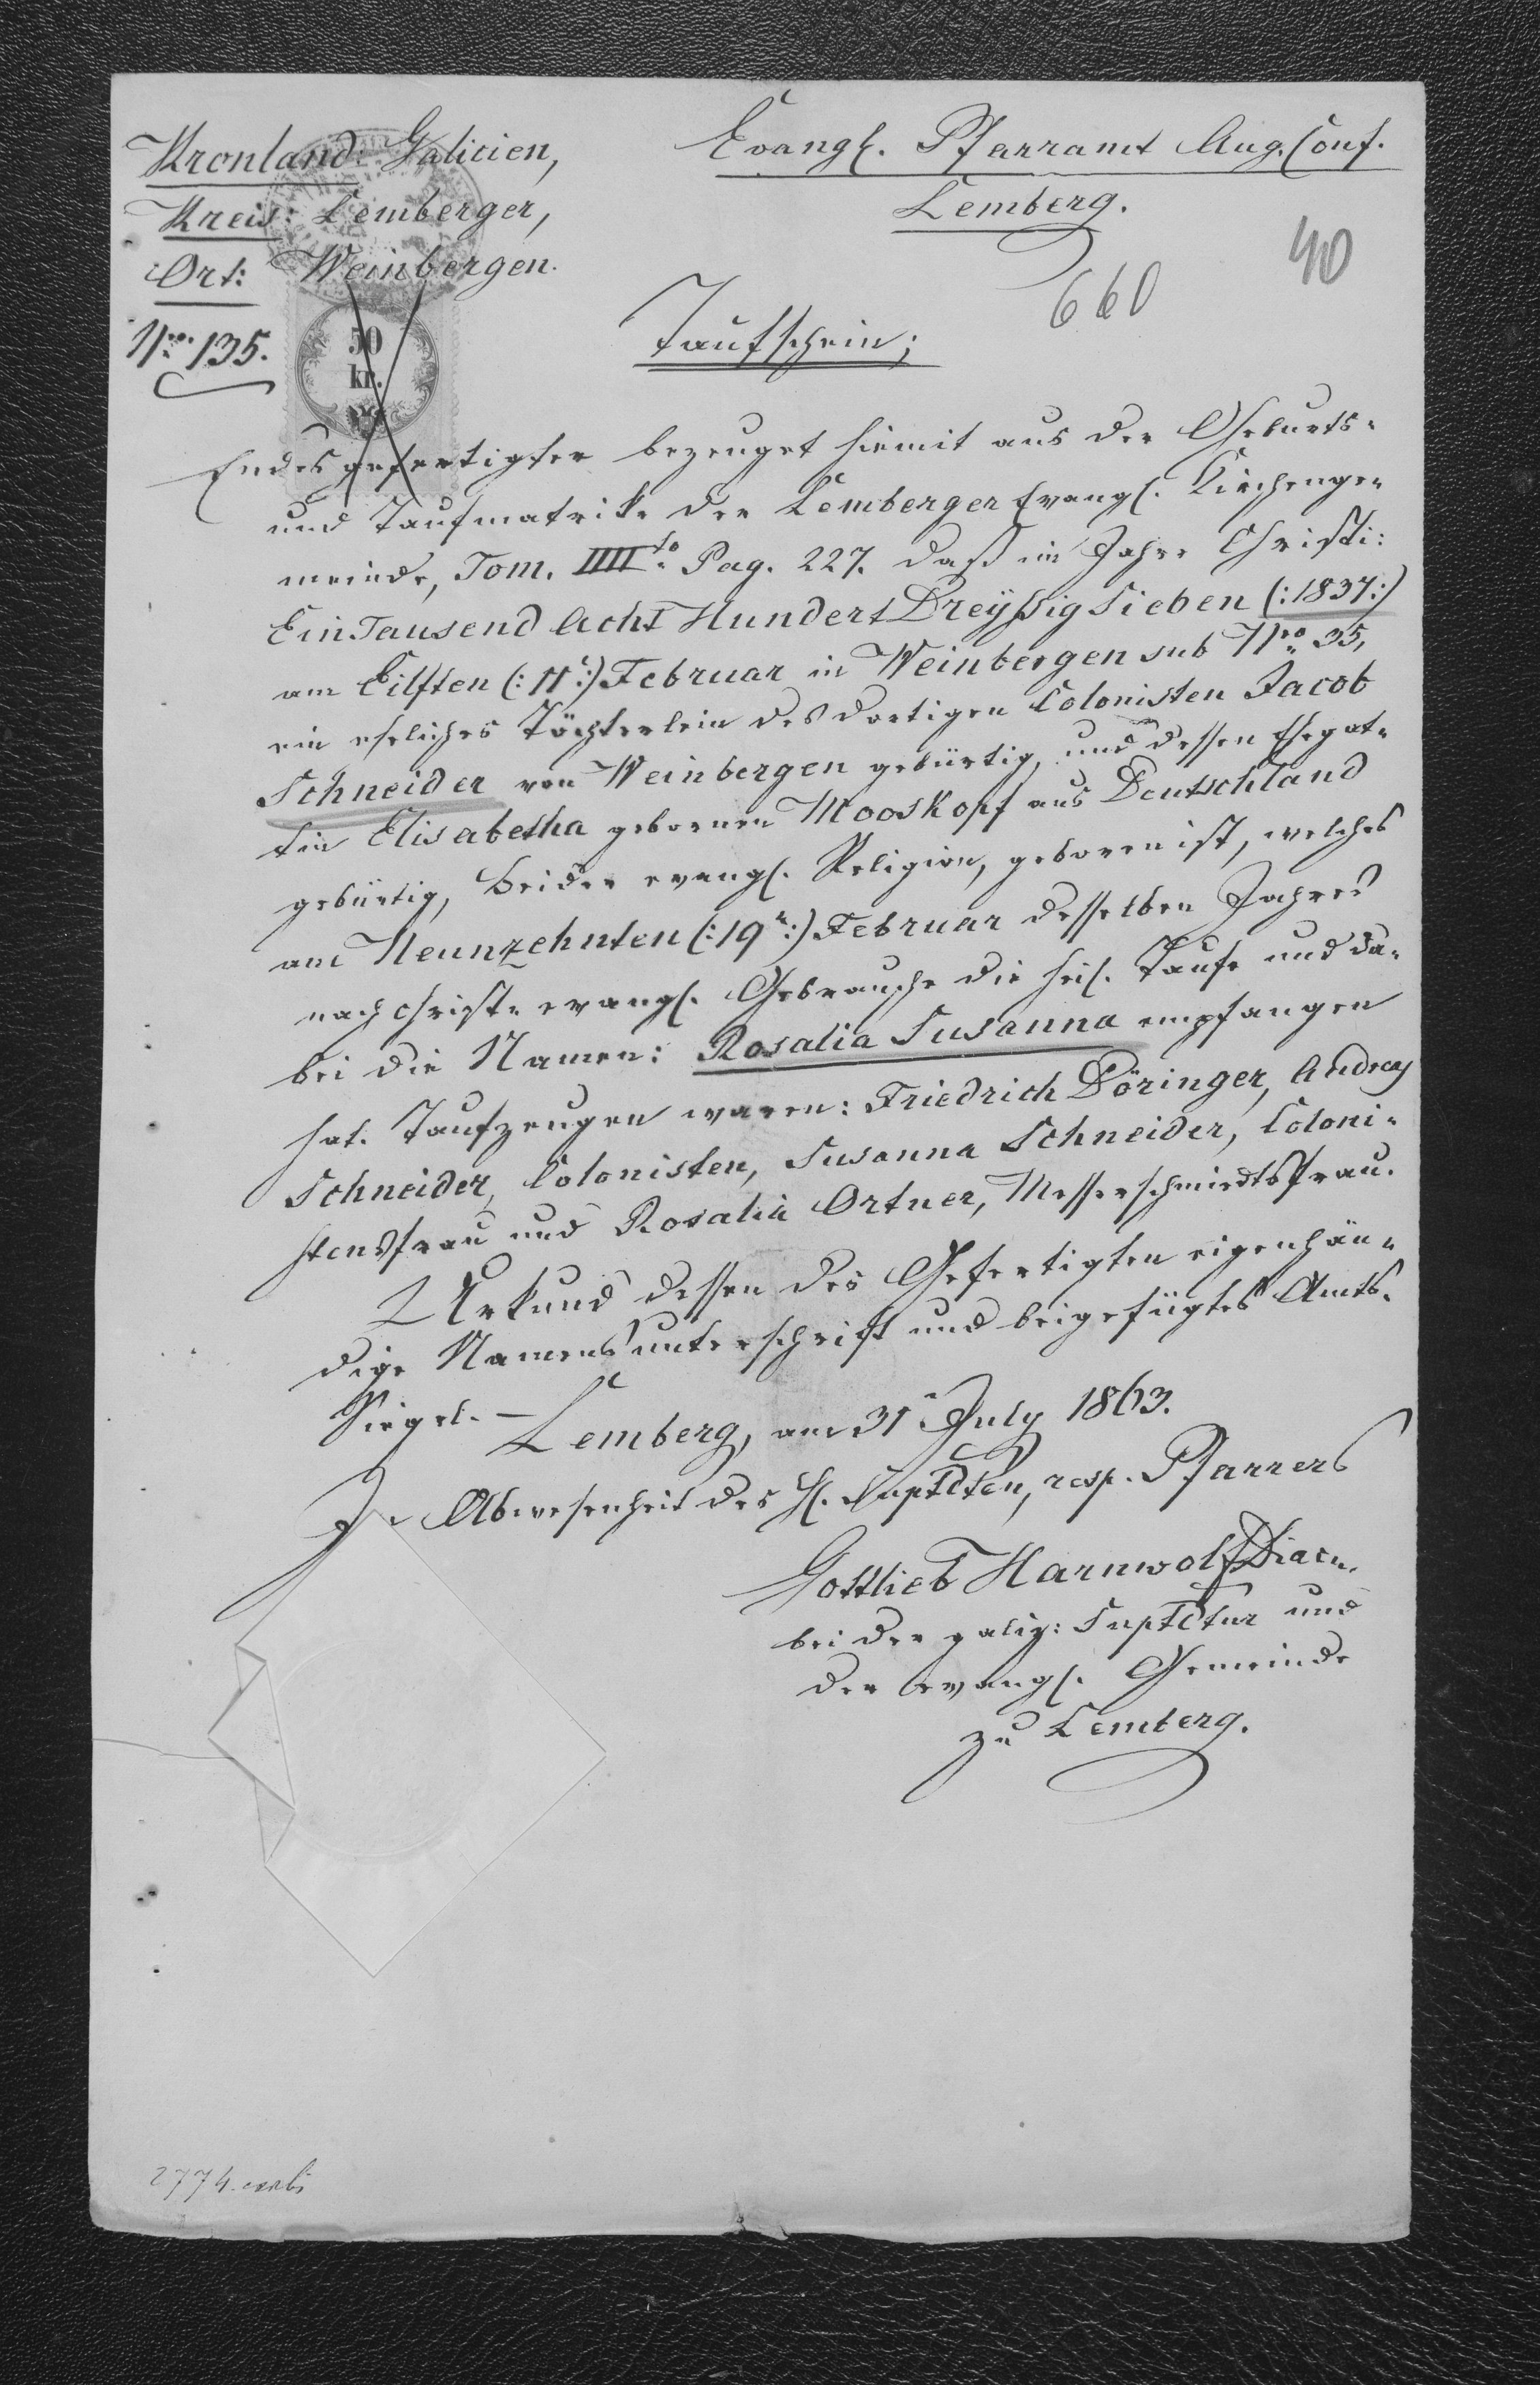 Kronland: Galicien,
Kreis: Lemberger,
Ort: Weinbergen.
Nro. 135.
Evangl. Pfarramt Aug. Conf.
Lemberg.
40
660
50
kr.
Taufschein;
Endesgefertigter bezeuget hiemit aus der Geburts-
und Taufmatrike der Lemberger Evangl. Kirchenge-
meinde, Tom. IIIIto. Pag. 227. daß im Jahre Christi:
Ein Tausend Acht Hundert Dreyßig Sieben (:1837:)
am Eilften (:11t:) Februar in Weinbergen sub Nro. 35,
ein eheliches Töchterlein des dortigen Colonisten Jacob
Schneider von Weinbergen gebürtig, und dessen Ehegat-
tin Elisabetha gebornen Mooskopf aus Deutschland
gebürtig, beider evangl. Religion, geboren ist, welches
am Neunzehnten (:19t:) Februar desselben Jahres
nach christ- evangl. Gebrauche die heil. Taufe und da-
bei die Namen: Rosalia Susanna empfangen
hat. Taufzeugen waren: Friedrich Döringer, Andreas
Schneider, Colonisten, Susanna Schneider, Coloni-
stensfrau und Rosalia Ortner, Messerschmiedtsfrau.
Urkund dessen des Gefertigten eigenhän-
dige Namensunterschrift und beigefügtes Amts-
Siegel. – Lemberg, am 31t July 1863.
In Abwesenheit des H. Suptdten, resp. Pfarrers
Gottlieb Harnwolf Diac.
bei der galiz: Suptdtur und
der evangl. Gemeinde
zu Lemberg.
2774.